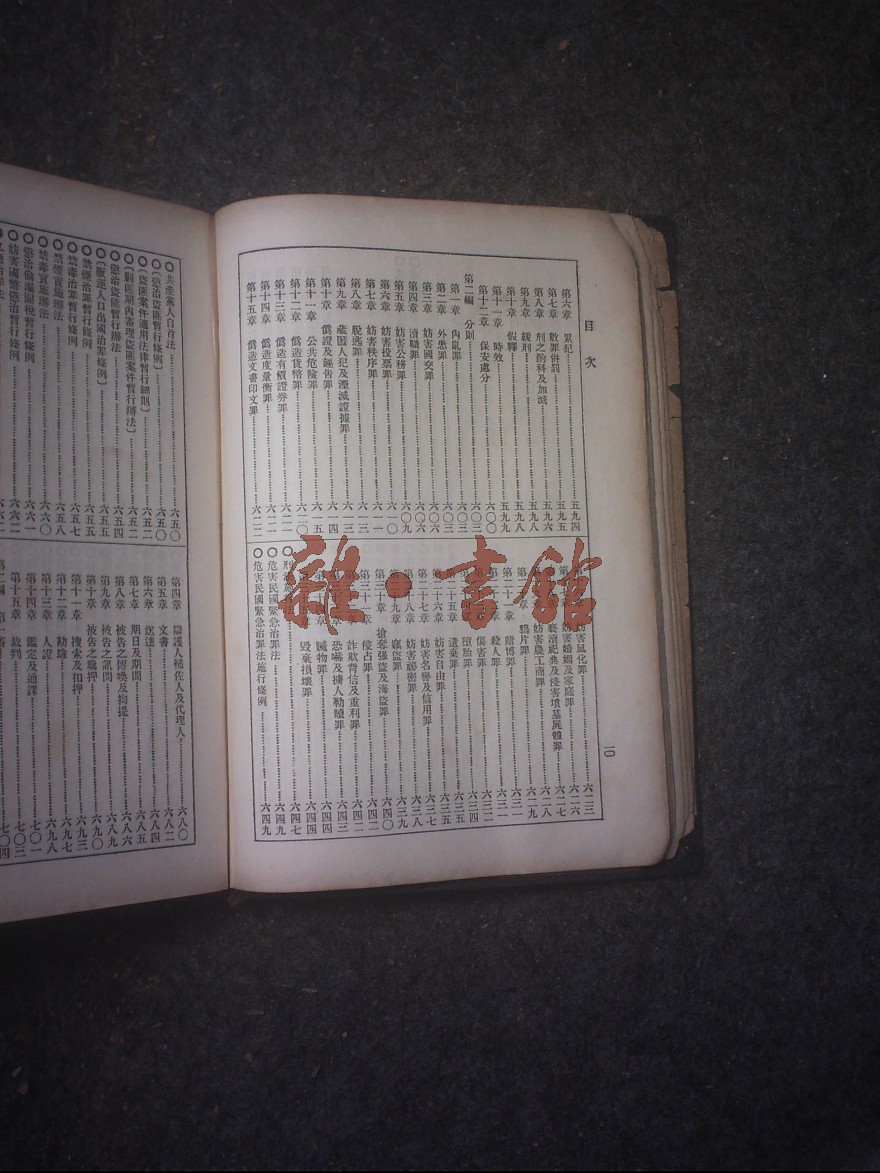 目次
第六章 累犯 五九四
第七章 數罪併罰 五九五
第八章 刑之酌科及加減 五九五
第九章 緩刑 五九八
第十章 假釋 五九九
第十一章 時效 五九九
第十二章 保安處分 六〇〇
第二編 分則 六〇三
第一章 內亂罪 六〇三
第二章 外患罪 六〇三
第三章 妨害國交罪 六〇六
第四章 瀆職罪 六〇六
第五章 妨害公務罪 六〇九
第六章 妨害投票罪 六一〇
第七章 妨害秩序罪 六一一
第八章 脫逃罪 六一三
第九章 藏匿人犯及湮滅證據罪 六一三
第十章 偽證及誣告罪 六一四
第十一章 公共危險罪 六一五
第十二章 偽造貨幣罪 六二〇
第十三章 偽造有價證券罪 六二一
第十四章 偽造度量衡罪 六二一
第十五章 偽造文書印文罪 六二二
妨害風化罪 六二三
妨害婚姻及家庭罪 六二六
褻瀆祀典及侵害墳墓屍體罪 六二七
妨害農工商罪 六二八
鴉片罪 六二九
第二十一章 賭博罪 六三一
殺人罪 六三一
傷害罪 六三二
墮胎罪 六三四
遺棄罪 六三五
第二十六章 妨害自由罪 六三五
第二十七章 妨害名譽及信用罪 六三七
妨害祕密罪 六三八
竊盜罪 六三九
搶奪强盜及海盜罪 六四〇
第三十一章 侵占罪 六四二
詐欺背信及重利罪 六四二
恐嚇及擄人勒贖罪 六四三
贓物罪 六四四
毀棄損壞罪 六四四
〇刑法施行法 六四七
〇危害民國緊急治罪法 六四九
〇危害民國緊急治罪法施行條例 六四九
一〇
〇共產黨人自首法 六五〇
〇〔懲治盜匪暫行條例〕 六五〇
〇〔盜匪案件適用法律暫行細則〕 六五二
〇〔剿匪期內審理盜匪案件暫行辦法〕 六五二
〇懲治盜匪暫行辦法 六五四
〇〔販運人口出國治罪條例〕 六五五
〇禁煙治罪暫行條例 六五五
〇禁毒治罪暫行條例 六五七
〇禁煙實施辦法 六五八
〇禁毒實施辦法 六六〇
〇懲治偷漏關稅暫行條例 六六一
〇妨害國幣懲治暫行條例 六六二
第四章 辯護人輔佐人及代理人 六八〇
第五章 文書 六八二
第六章 送達 六八四
第七章 期日及期間 六八五
第八章 被告之傳喚及拘提 六八六
第九章 被告之訊問 六八九
第十章 被告之羈押 六九〇
第十一章 搜索及扣押 六九三
第十二章 勘驗 六九七
第十三章 人證 六九八
第十四章 鑑定及通譯 七〇一
第十五章 裁判 七〇三
第二編 第一審 七〇四
雜·書館